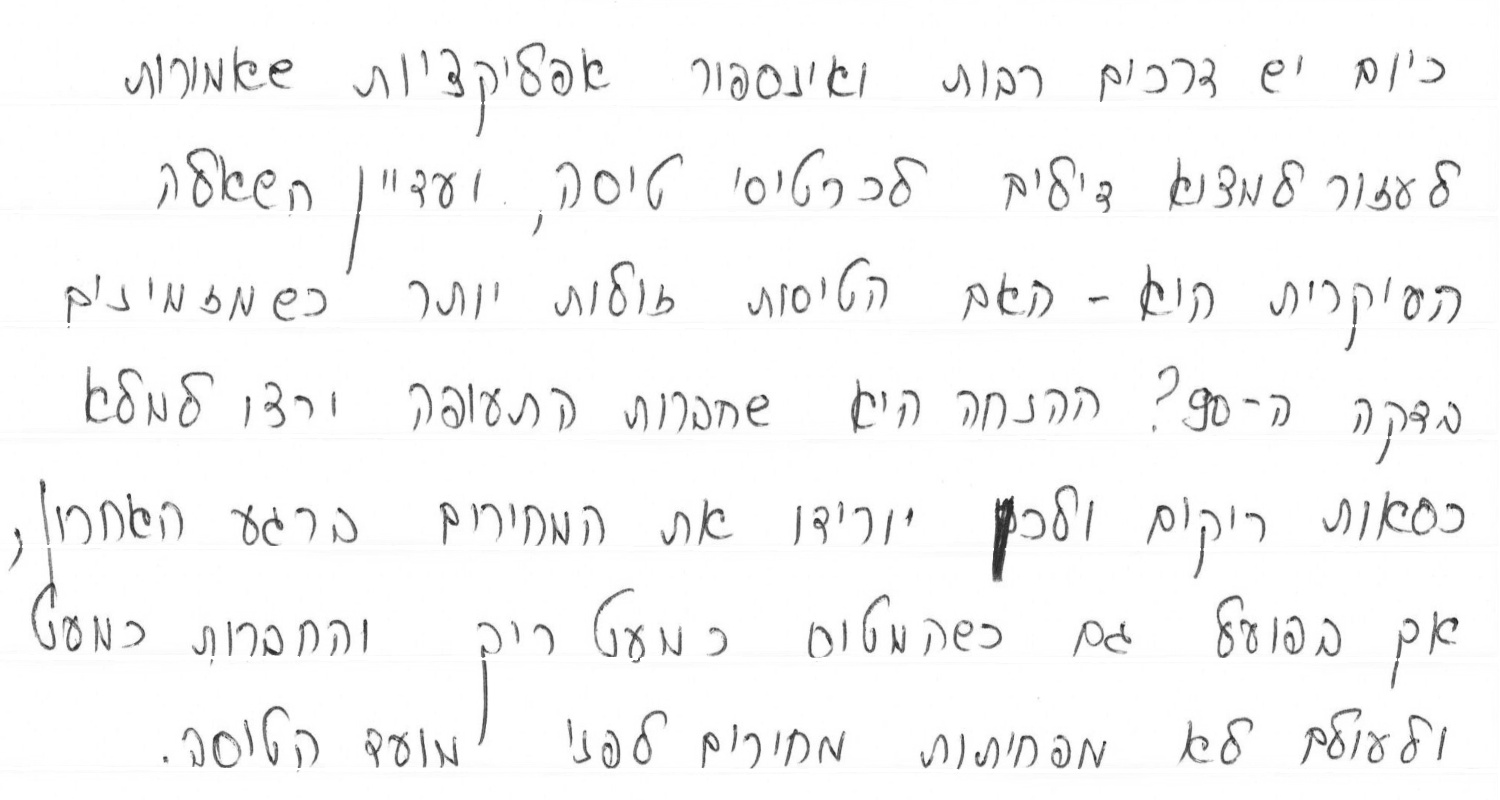 כיום יש דרכים רבות ואינספור אפליקציות שאמורות
לעזור למצוא דילים לכרטיסי טיסה, ועדיין השאלה
העיקרית היא - האם הטיסות זולות יותר כשמזמינים
בדקה ה-90? ההנחה היא שחברות התעופה ירצו למלא
כסאות ריקים ולכן יורידו את המחירים ברגע האחרון,
אך בפועל גם כשהמטוס כמעט ריק והחברות כמעט
ולעולם לא מפחיתות מחירים לפני מועד הטיסה.